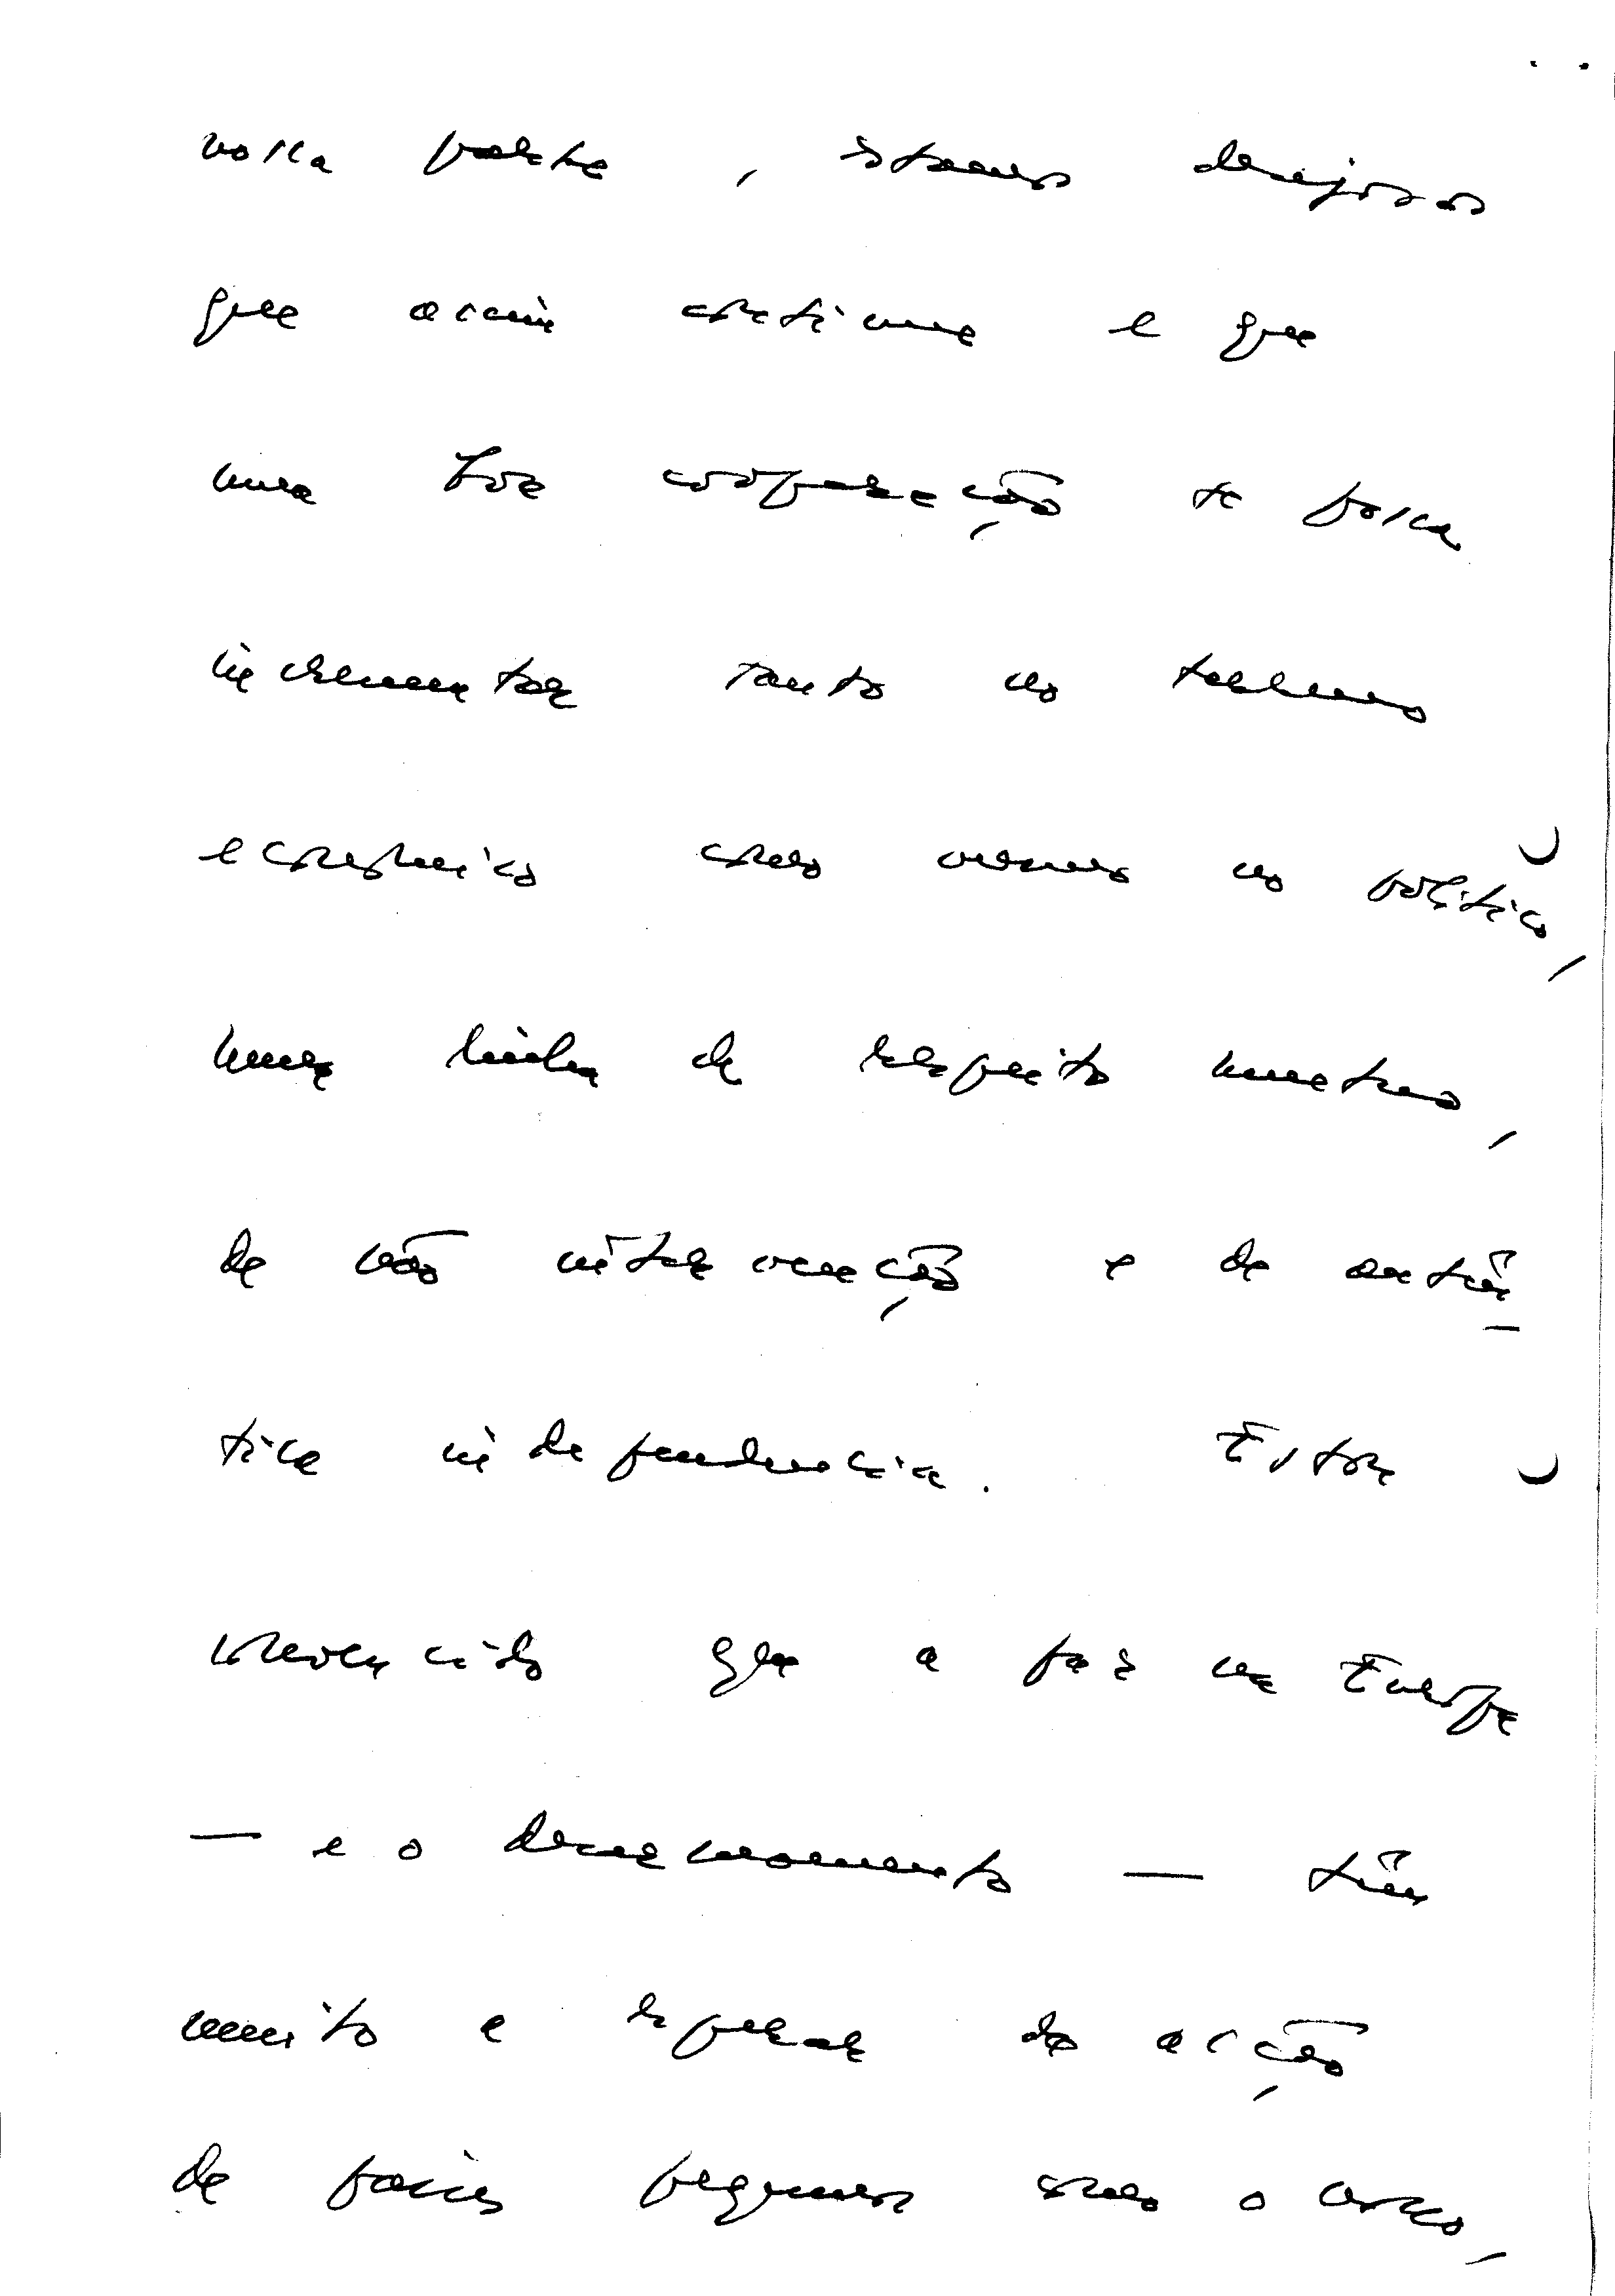 nossa parte, estamos desejosos
que assim continue e que
uma boa cooperação se possa
incrementar tanto no terreno
económico como mesmo no político,
numa linha de respeito mútuo,
de não intervenção e de autên-
tica independência. Estou
convencido que a paz na Europa
— e o desarmamento — têm
muito a esperar da acção
de países pequenos como o vosso,